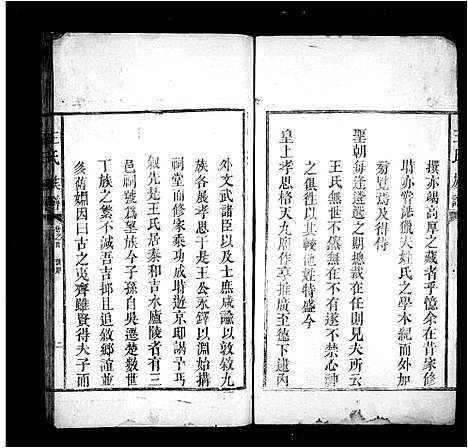 撰亦竭高厚之藏者乎憶余在昔家修
時亦嘗涉獵夫姓氏之學本視而外加
蒭覽焉及得侍
聖朝每逢遴選之期總裁在庭則見夫所
王氏無世不然無在不有不禁心神
之俱往以其較他姓特盛今
皇上孝思格天九廟作享推廣至德下逮內
外文武諸臣以及士庶咸諭以敦敘九
族各展孝思于是王公承鐸以淵始搆
祠堂而修家乘功成時遊京邸謁予丐
敘先是王氏居泰和吉水廬陵者有三
邑祠號為望族今子孫自吳遷楚數世
丁族之繁亦不減吾吉邦以敘鄉誼並
多舊媚因曰古之夷齊雖賢得夫子而
王氏族譜
卷之首
二
王氏族譜